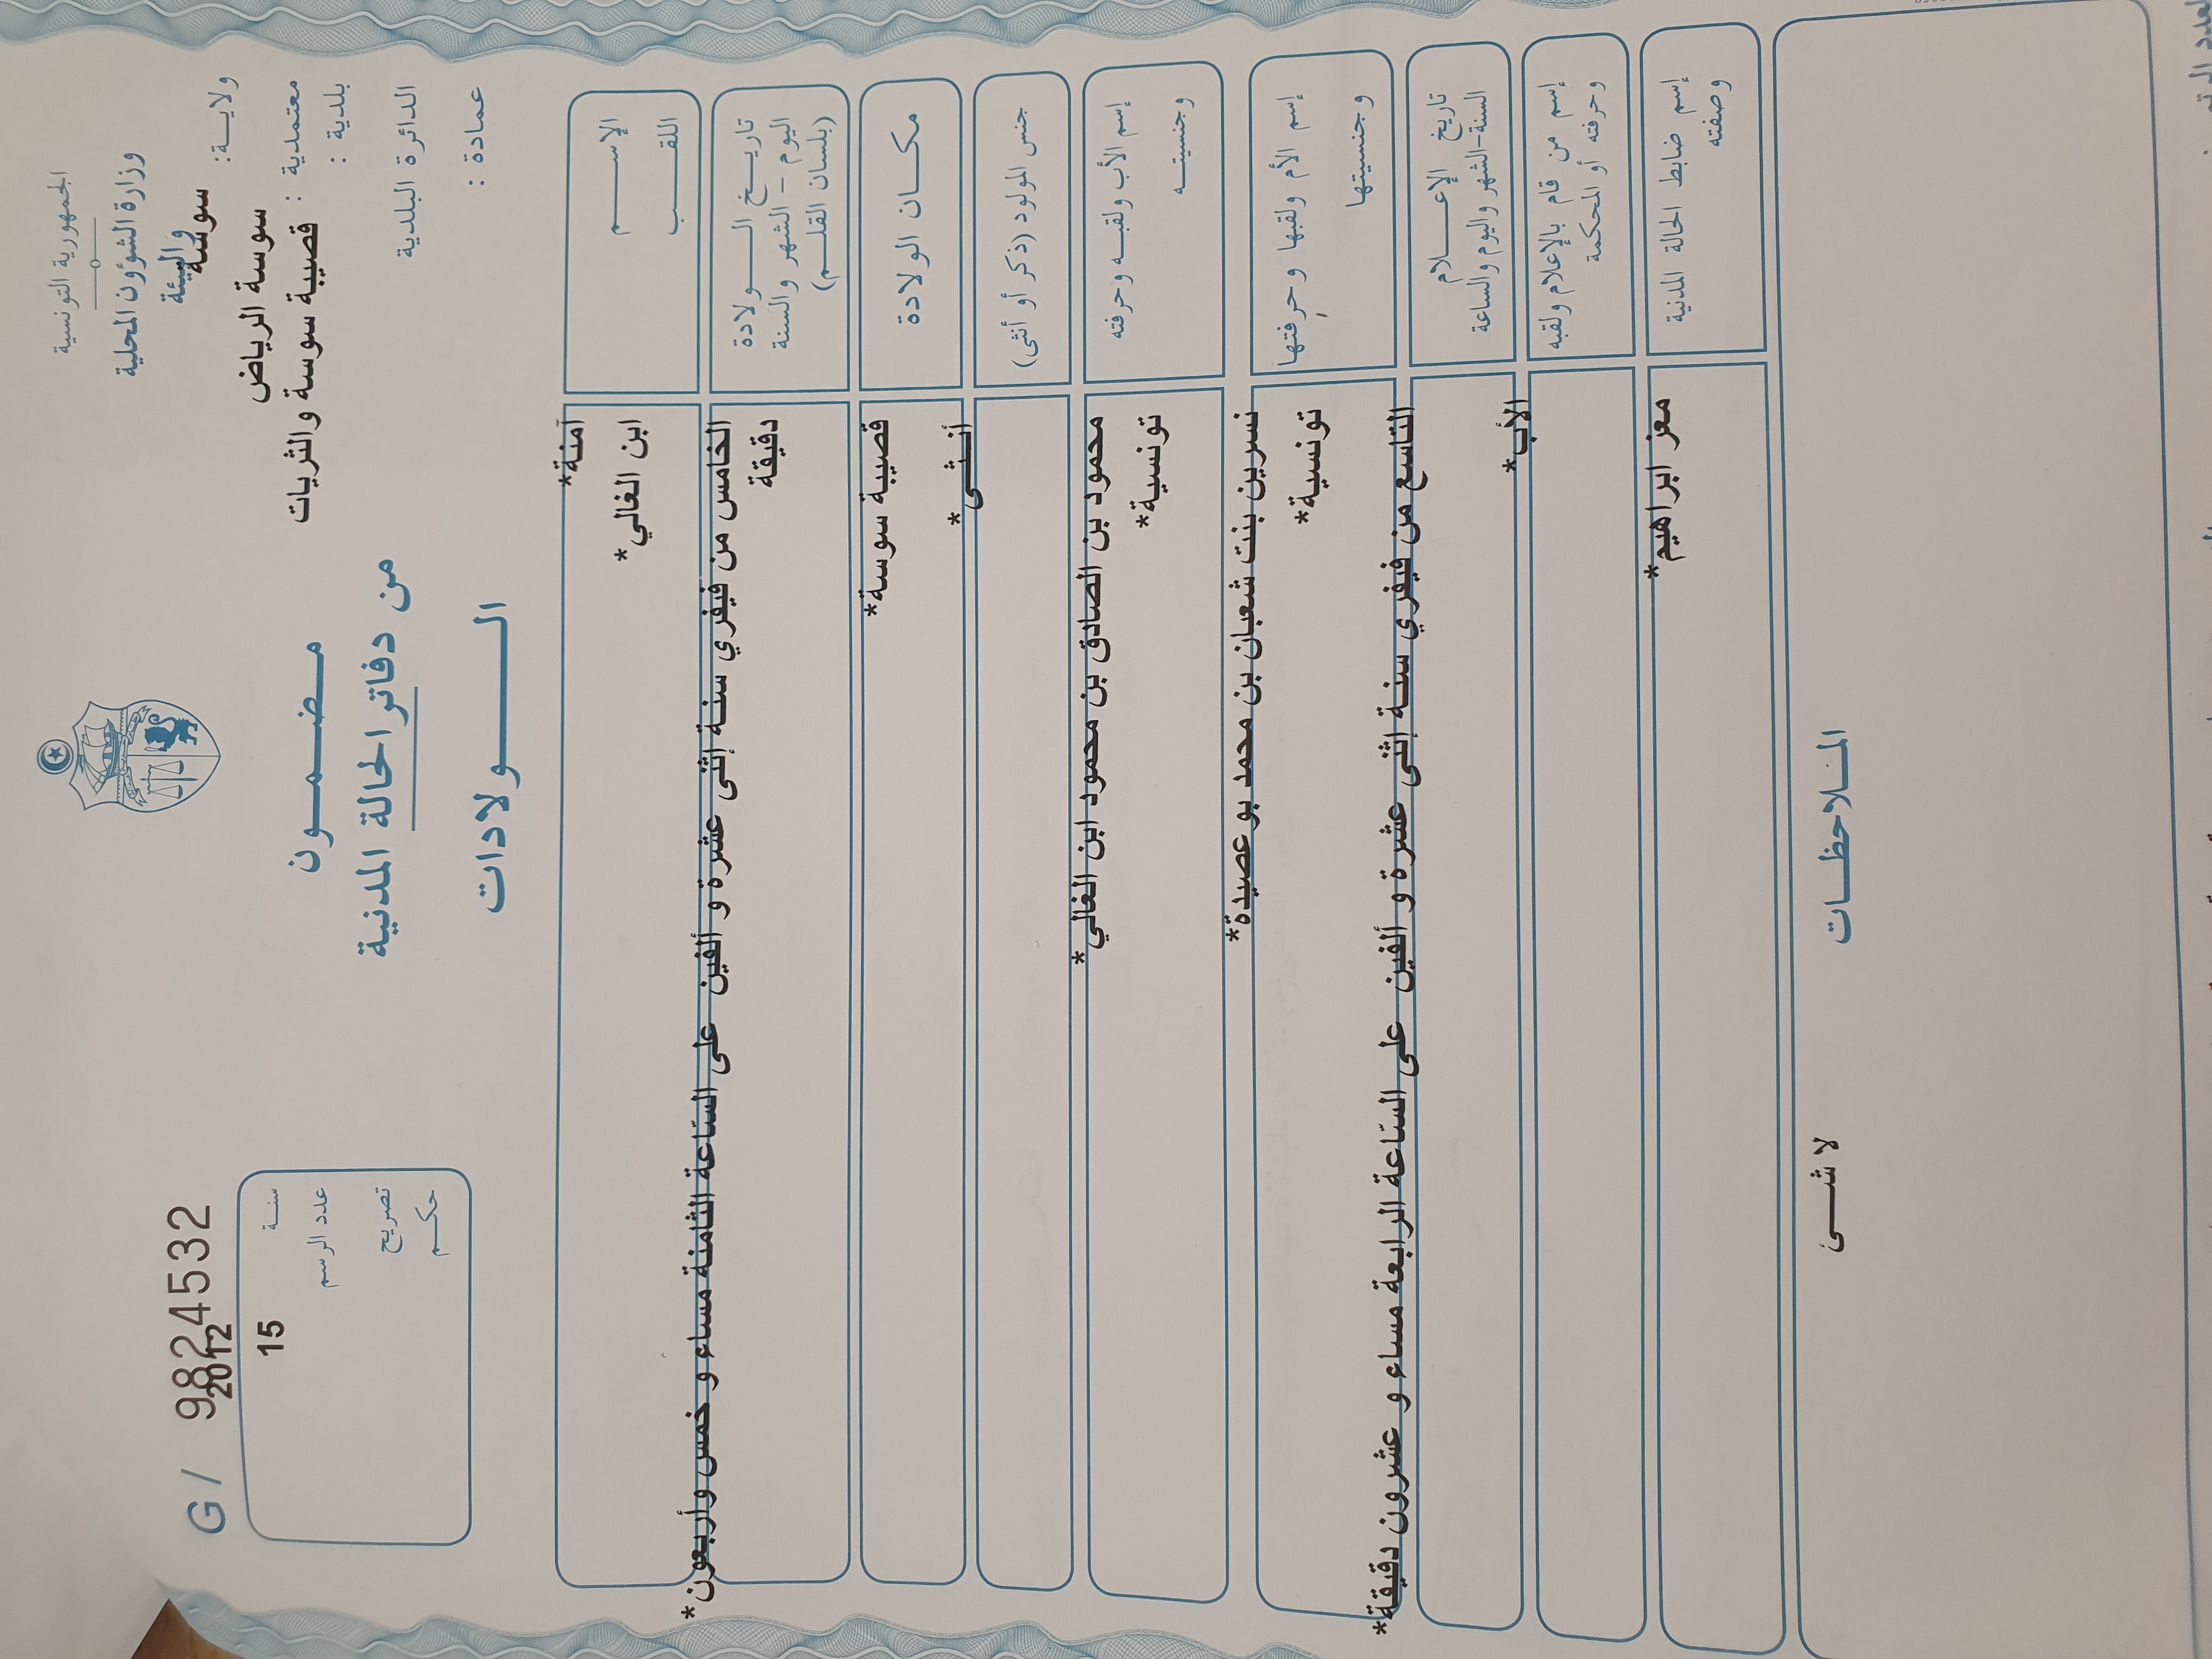 الجمهورية التونسية
وزارة الشؤون المحلية
والبيئة
ولايـة: سوسة
معتمدية : سوسة الرياض
بلدية : قصيبة سوسة والثريات
الدائرة البلدية
عمادة :
مـضـمـون
من دفاتر الحالة المدنية
الـولادات
G/ 9824532
سنـة 2012
عدد الرسم 15
تصريح
حكـم
الإسـم آمنة*
اللقـب ابن الغالي*
تاريـخ الـولادة
اليوم - الشهر والسنة
(بلسان القلـم)
الخامس من فيفري سنة إثنى عشرة و ألفين على السّاعة الثامنة مساء و خمس وأربعون*
دقيقة
مكـان الولادة قصيبة سوسة*
جنس المولود (ذكر أو أنثى) أنـثـى*
إسم الأب ولقبـه وحرفته محمود بن الصادق بن محمود ابن الغالي*
وجنسيتـه تونسية*
إسم الأم ولقبها وحرفتها نسرين بنت شعبان بن محمد بو عصيدة*
وجنسيتها تونسية*
تاريخ الإعـلام
السنة-الشهر واليوم والساعة
التاسع من فيفري سنة إثنى عشرة و ألفين على السّاعة الرابعة مساء و عشرون دقيقة*
إسم من قام بالإعلام ولقبه
وحرفته أو المحكمة
الأب*
إسم ضابط الحالة المدنية
وصفته
معز ابراهيم*
الملاحظـات
لا شـئ